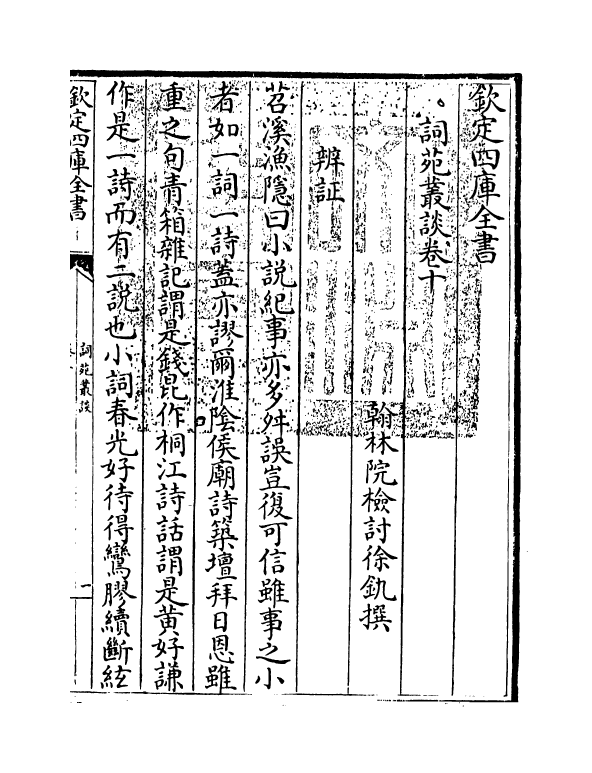 欽定四庫全書
詞苑叢談卷十
翰林院檢討徐釚撰
辨証
苕溪漁隱曰小說紀事亦多舛誤豈復可信雖事之小
者如一詞一詩蓋亦謬爾淮陰侯廟詩築壇拜日恩雖
重之句青箱雜記謂是錢昆作桐江詩話謂是黃好謙
作是一詩而有二說也小詞春光好待得鸞膠續斷絃
欽定四庫全書
詞苑叢談
一